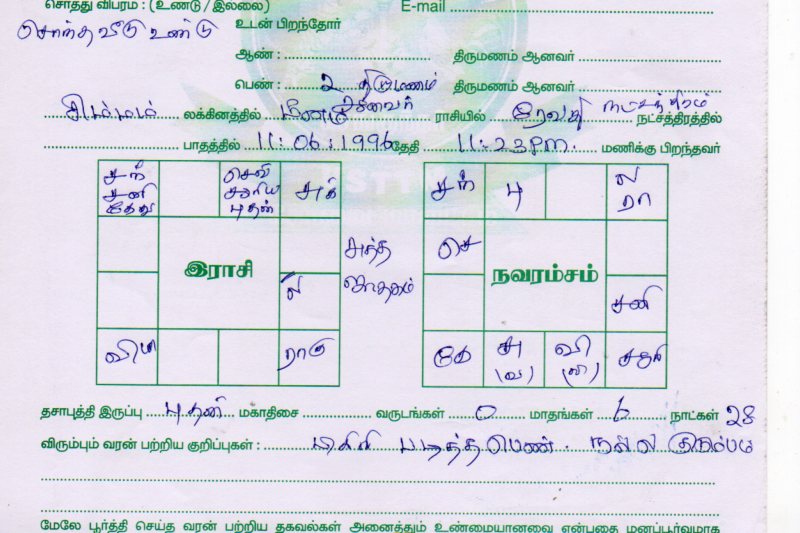 சொத்து விபரம் : (உண்டு / இல்லை) E-mail
சொந்த வீடு உண்டு
உடன் பிறந்தோர்
ஆண் : திருமணம் ஆனவர்
பெண் : 2 திருமணம் திருமணம் ஆனவர்
சிம்மம் லக்கினத்தில் மீனம் ராசியில் ரேவதி நட்சத்திரம் நட்சத்திரத்தில்
பாதத்தில் 11:06:1996 தேதி 11:23Pm. மணிக்கு பிறந்தவர்
சந் செவ் சுக் சந் பு ல
சனி சூரிய ரா
கேது புதன்
செ
சுத்த
இராசி நவரம்சம்
ஜாதகம்
ல சனி
வியா ராகு கே சு வி சூரி
(வ) (வ)
தசாபுத்தி இருப்பு புதன் மகாதிசை வருடங்கள் 0 மாதங்கள் 6 நாட்கள் 28
விரும்பும் வரன் பற்றிய குறிப்புகள் : டிகிரி படித்த பெண். நல்ல குடும்பம்
மேலே பூர்த்தி செய்த வரன் பற்றிய தகவல்கள் அனைத்தும் உண்மையானவை என்பதை மனப்பூர்வமாக